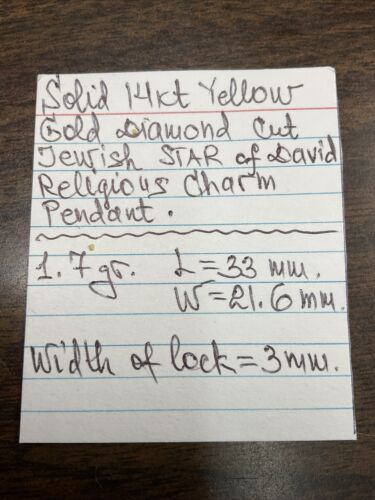 Solid 14kt Yellow
Gold Diamond Cut
Jewish STAR of David
Religious Charm
Pendant.
1.7gr. L=33 mm.
W=21.6 mm.
Width of lock=3mm.